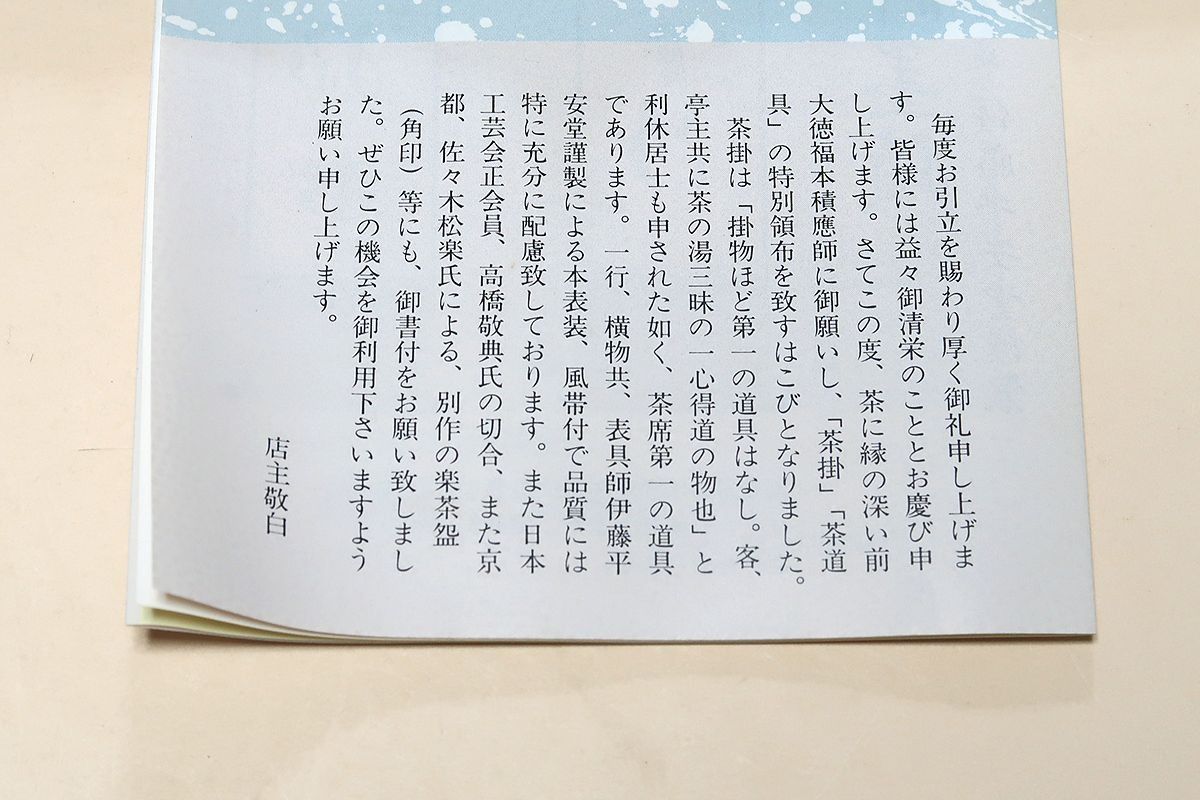 毎度お引立を賜わり厚く御礼申し上げま
す。皆様には益々御清栄のこととお慶び申
し上げます。さてこの度、茶に縁の深い前
大徳福本積應師に御願いし、「茶掛」「茶道
具」の特別領布を致すはこびとなりました。
茶掛は「掛物ほど第一の道具はなし。客、
亭主共に茶の湯三昧の一心得道の物也」と
利休居士も申された如く、茶席第一の道具
であります。一行、横物共、表具師伊藤平
安堂謹製による本表装、風帯付で品質には
特に充分に配慮致しております。また日本
工芸会正会員、高橋敬典氏の切合、また京
都、佐々木松楽氏による、別作の楽茶盌
（角印）等にも、御書付をお願い致しまし
た。ぜひこの機会を御利用下さいますよう
お願い申し上げます。
店主敬白